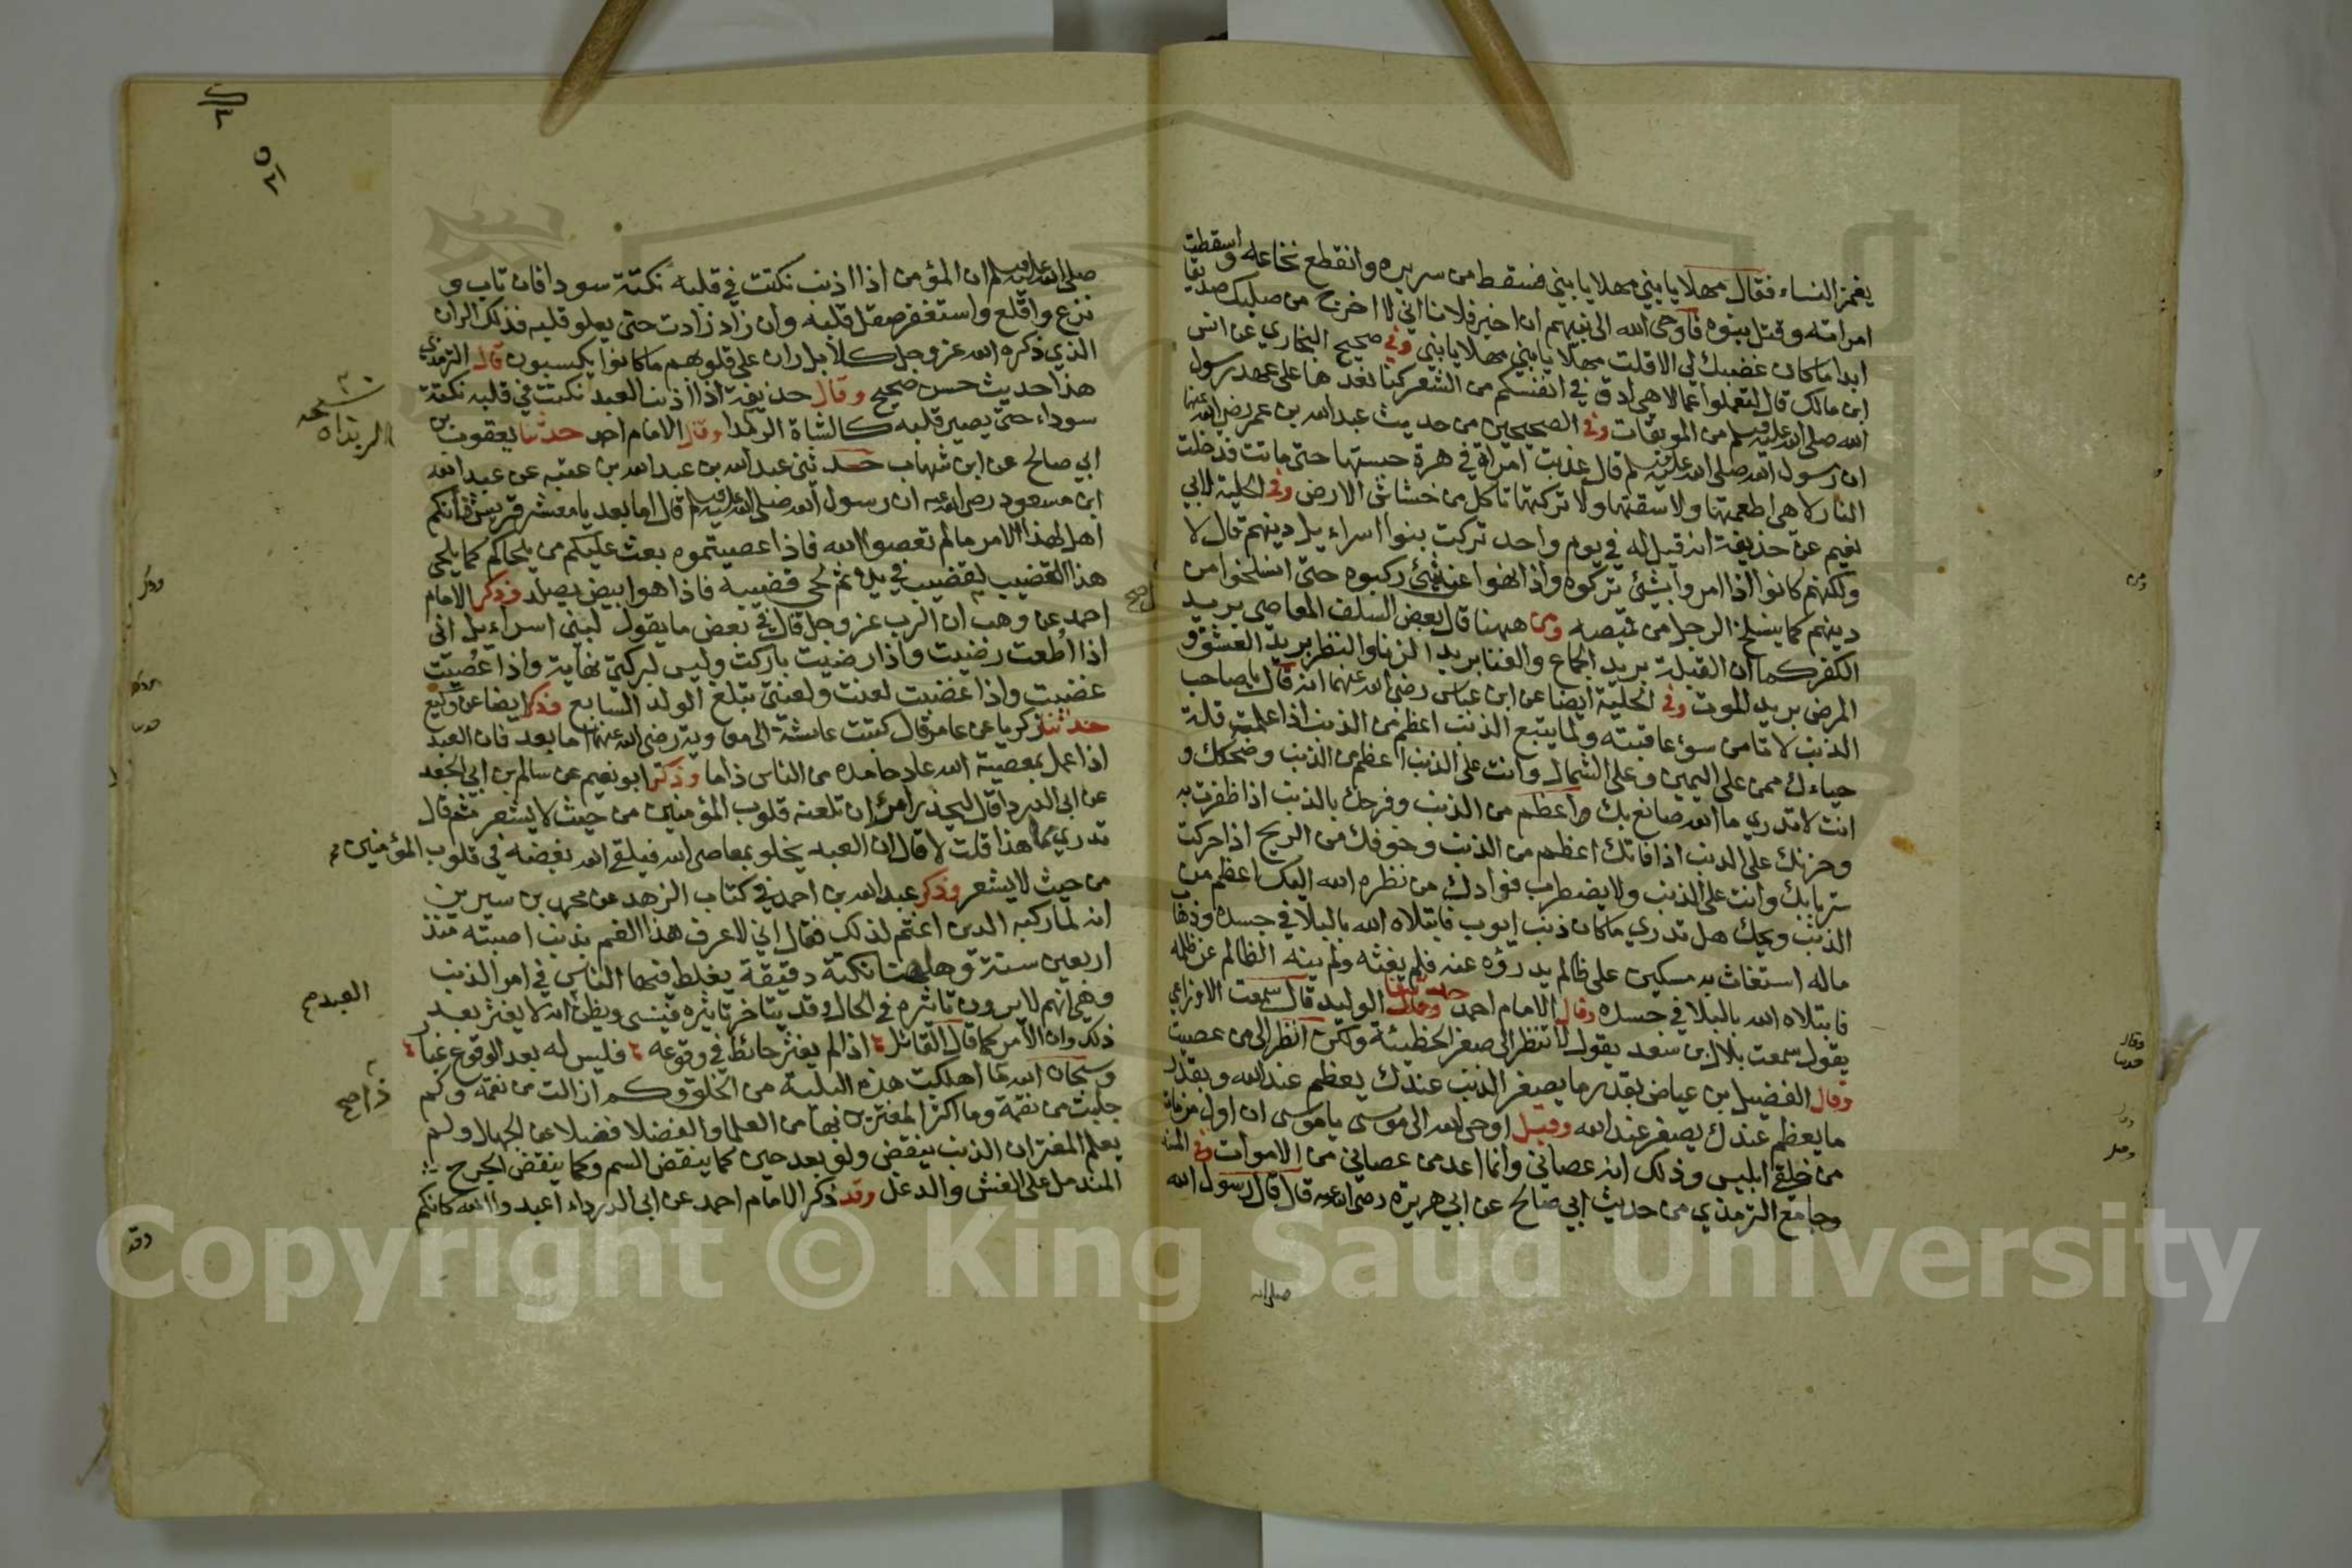 يغمز النساء فقال مهلا يا بني مهلا يا بني فسقط من سريره وانقطع نخاعه واسقطت
امراته وقتل بنوه فاوحى الله الى نبيهم ان اخبر فلانا اني لا اخرج من صلبك صديقا
ابدا ما كان غضبك لي الا قلت مهلا يا بني مهلا يا بني وفي صحيح البخاري عن انس
ابن مالك قال لتعملوا اعمالا هي ادق في اعينكم من الشعر كنا نعدها على عهد رسول
الله صلى الله عليه وسلم من الموبقات وفي الصحيحين من حديث عبد الله بن عمر رضي الله عنهما
ان رسول الله صلى الله عليه وسلم قال عذبت امراة في هرة حبستها حتى ماتت فدخلت
النار لا هي اطعمتها ولا سقتها ولا تركتها تاكل من خشاش الارض وفي الحلية لابي
نعيم عن حذيفة انه قيل له في يوم واحد تركت بنوا اسراءيل دينهم قال لا
ولكنهم كانوا اذا امروا بشئ تركوه واذا نهوا عن شئ ركبوه حتى انسلخوا من
دينهم كما ينسلخ الرجل من قميصه ومن ههنا قال بعض السلف المعاصي بريد
الكفر كما ان القبلة بريد الجماع والغنا بريد الزنا والنظر بريد العشق و
المرض بريد الموت وفي الحلية ايضا عن ابن عباس رضي الله عنهما انه قال يا صاحب
الذنب لا تامن سوء عاقبته ولما يتبع الذنب اعظم من الذنب اذا عملت قلة
حياءك ممن على اليمين وعلى الشمال وانت على الذنب اعظم من الذنب وضحكك و
انت لا تدري ما الله صانع بك واعظم من الذنب وفرحك بالذنب اذا ظفرت به
وحزنك على الذنب اذا فاتك اعظم من الذنب وخوفك من الريح اذا حركت
ستر بابك وانت على الذنب ولا يضطرب فوادك من نظره الله اليك اعظم من
الذنب ويحك هل تدري ما كان ذنب ايوب فابتلاه الله بالبلا في جسده وذهاب
ماله استغاث به مسكين على ظالم يدرؤه عنه فلم يغثه ولم ينه الظالم عن ظلمه
فابتلاه الله بالبلا في جسده وقال الامام احمد حدثنا الوليد قال سمعت الاوزاعي
يقول سمعت بلال بن سعد يقول لا تنظر الى صغر الخطيئة ولكن انظر الى من عصيت
وقال الفضيل بن عياض بقدر ما يصغر الذنب عندك يعظم عند الله وبقدر
ما يعظم عندك يصغر عند الله وقيل اوحى الله الى موسى يا موسى ان اول من مات
من خلقي ابليس وذلك انه عصاني وانما اعد من عصاني من الاموات وفي المسند
وجامع الترمذي من حديث ابي صالح عن ابي هريرة رضي الله عنه قال قال رسول الله
صلى الله
صلى الله عليه وسلم ان المؤمن اذا اذنب نكتت في قلبه نكتة سودا فان تاب و
نزع واقلع واستغفر صقل قلبه وان زاد زادت حتى يعلو قلبه فذلك الران
الذي ذكره الله عز وجل كلا بل ران على قلوبهم ما كانوا يكسبون قال الترمذي
هذا حديث حسن صحيح وقال حذيفة اذا اذنب العبد نكتت في قلبه نكتة
سوداء حتى يصير قلبه كالشاة الربدا وقال الامام احمد حدثنا يعقوب بن
ابي صالح عن ابن شهاب حدثني عبد الله بن عبد الله بن عتبه عن عبد الله
ابن مسعود رضي الله عنه ان رسول الله صلى الله عليه وسلم قال اما بعد يا معشر قريش فانكم
اهل لهذا الامر ما لم تعصوا الله فاذا عصيتموه بعث عليكم من يلحاكم كما يلحى
هذا القضيب لقضيب في يده ثم لحى قضيبه فاذا هو ابيض يصلد وذكر الامام
احمد عن وهب ان الرب عز وجل قال في بعض ما يقول لبني اسراءيل اني
اذا اطعت رضيت واذا رضيت باركت وليس لبركتي نهاية واذا عصيت
غضبت واذا غضبت لعنت ولعنتي تبلغ الولد السابع وذكر ايضا عن وكيع
حدثنا زكريا عن عامر قال كتبت عايشة الى معاوية رضي الله عنهما اما بعد فان العبد
اذا عمل بمعصية الله عاد حامده من الناس ذاما وذكر ابو نعيم عن سالم بن ابي الجعد
عن ابي الدرداء قال ليحذر امرئ ان تلعنه قلوب المؤمنين من حيث لا يشعر ثم قال
تدري مما هذا قلت لا قال ان العبد يخلو بمعاصي الله فيلقي الله بغضه في قلوب المؤمنين
من حيث لا يشعر وذكر عبد الله بن احمد في كتاب الزهد عن محمد بن سيرين
انه لما ركبه الدين اغتم لذلك فقال اني لاعرف هذا الغم بذنب اصبته منذ
اربعين سنة وههنا نكتة دقيقة يغلط فيها الناس في امر الذنب
وهي انهم لا يرون تاثيره في الحال وقد يتاخر تاثيره فينسى ويظن انه لا يغبر بعد
ذلك وان الامر كما قال القائل اذا لم يغبر حائط في وقوعه فليس له بعد الوقوع غبار
وسبحان الله ما اهلكت هذه البلية من الخلق وكم ازالت من نعمة وكم
جلبت من نقمة وما اكثر المغترين بها من العلما والفضلا فضلا عن الجهال ولم
يعلم المغتر ان الذنب ينقض ولو بعد حين كما ينقض السم وكما ينقض الجرح
المندمل على الغش والدغل وقد ذكر الامام احمد عن ابي الدرداء اعبدوا الله كانكم
نسخه
الربداه
العبد
صح